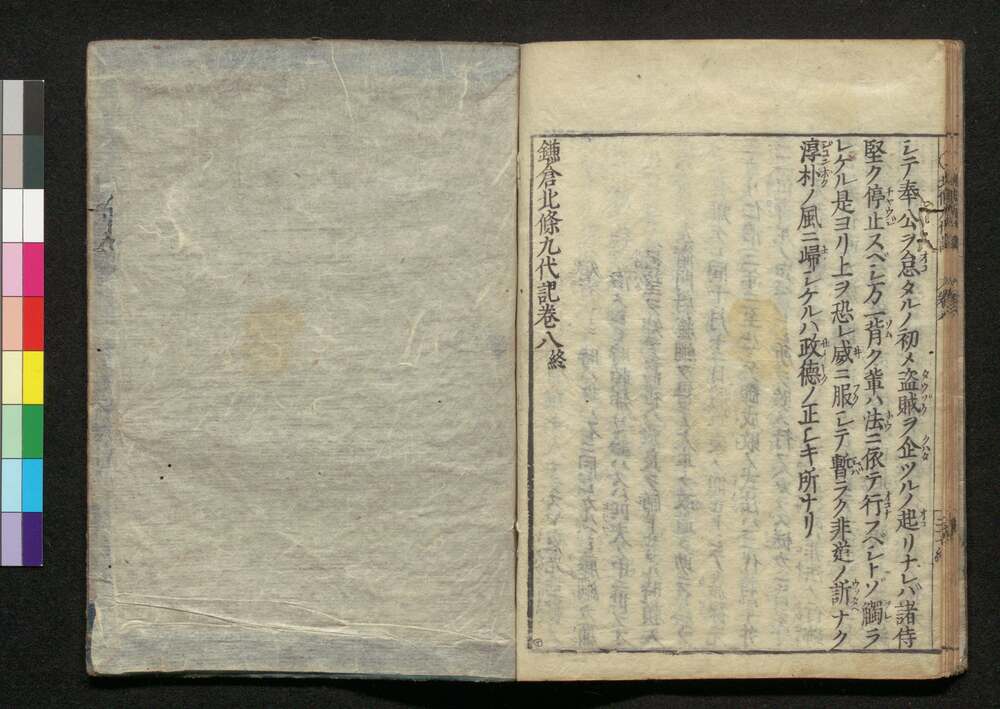 シテ奉公ヲ怠タルノ初メ盗賊ヲ企ツルノ起リナレバ諸侍
堅ク停止スベシ万一背ク輩ハ法ニ依テ行スベシトゾ觸ラ
レケル是ヨリ上ヲ恐レ威ニ服シテ暫ラク非道ノ訴ナク
淳朴ノ風ニ歸シケルハ政德ノ正シキ所ナリ
鎌倉北條九代記巻八終